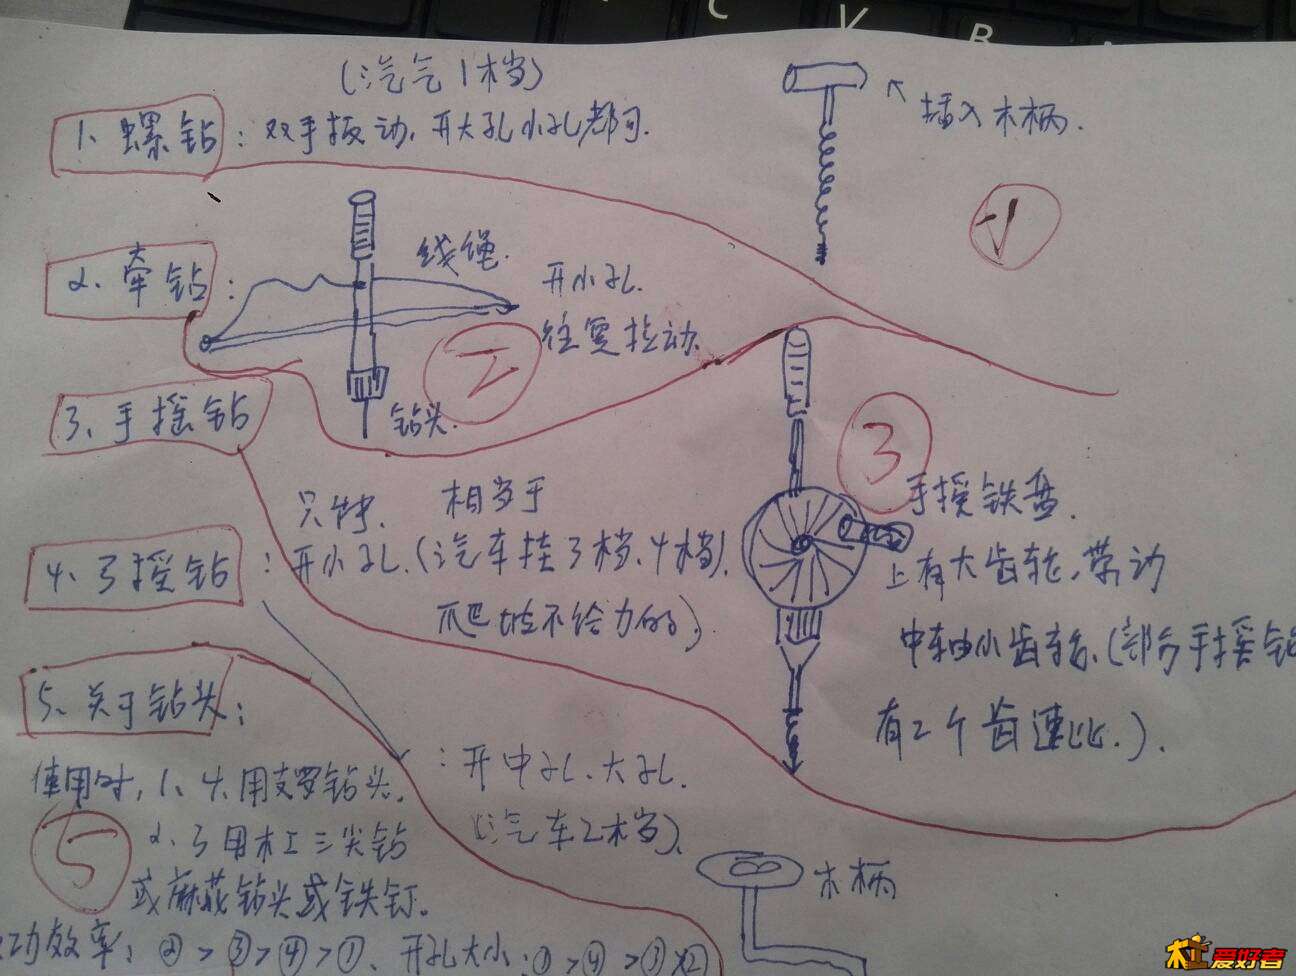 C V B
(汽气1档)
1、螺钻：双手扳动，开大孔小孔都可.
插入木柄.
1
2、牵钻：
线绳.
开小孔.
往复拉动.
2
钻头.
3、手摇钻
3
只能 相当于
：开小孔.(汽车挂3档、4档).
爬坡不给力的)
手摇铁盘.
上有大齿轮，带动
中轴小齿轮.(部分手摇钻
有2个齿速比.).
4、弓摇钻
：开中孔、大孔.
(汽车2档).
木柄
5、关于钻头：
使用时，1、4用支罗钻头.
2、3用木工三尖钻
或麻花钻头或铁钉.
5
功效率：②>③>④>①、开孔大小：①>④>③>②
木工爱好者